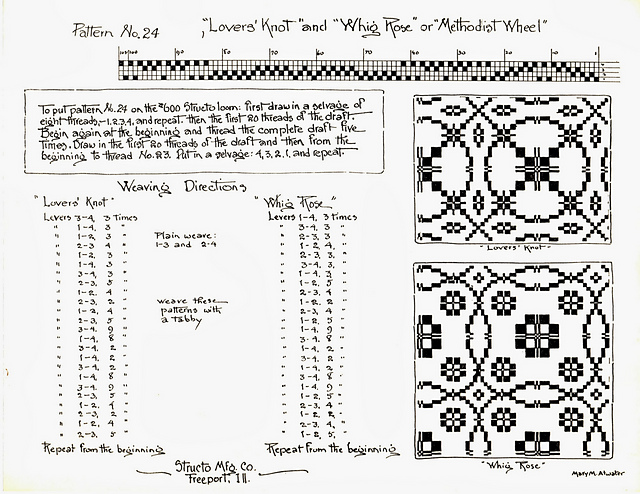 Pattern No. 24 „"Lovers' Knot" and "Whig Rose" or "Methodist Wheel"
90 80 70 60 50 40 30 20 10 1
To put pattern No. 24 on the #600 Structo loom: first draw in a selvage of
eight threads,-1,2,3,4, and repeat. then the first 20 threads of the draft.
Begin again at the beginning and thread the complete draft five
times. Draw in the first 20 threads of the draft and then from the
beginning to thread No. 83. Put in a selvage: 4,3,2,1, and repeat.
Weaving Directions
"Lovers' Knot"
Levers 3-4, 3 Times
" 1-4, 3 "
" 1-2, 3 "
" 2-3 4 "
" 1-2, 3 "
" 1-4, 3 "
" 3-4, 3 "
" 2-3, 5 "
" 1-2, 4 "
" 2-3, 2 "
" 1-2, 4 "
" 2-3, 5 "
" 3-4, 9 "
" 1-4, 8 "
" 3-4, 2 "
" 1-4, 2 "
" 3-4, 2 "
" 1-4, 8 "
" 3-4 9 "
" 2-3, 5 "
" 1-2, 4 "
" 2-3, 2 "
" 1-2, 4 "
" 2-3, 5 "
Repeat from the beginning
Plain weave:
1-3 and 2-4
weave these
patterns with
a tabby
"Whig Rose"
Levers 1-4, 3 times
" 3-4, 3 "
" 2-3, 3 "
" 1-2, 4, "
" 2-3, 3, "
" 3-4, 3, "
" 1-4, 3 "
" 1-2, 5 "
" 2-3, 4 "
" 1-2, 2 "
" 2-3, 4 "
" 1-2, 5 "
" 1-4, 9 "
" 3-4, 8 "
" 1-4, 2 "
" 3-4, 2 "
" 1-4, 2 "
" 3-4, 8 "
" 1-4, 9 "
" 1-2, 5 "
" 2-3, 4 "
" 1-2, 2 "
" 2-3, 4, "
" 1-2, 5, "
Repeat from the beginning
"Lovers' Knot"
"Whig Rose"
Structo Mfg. Co.
Freeport, Ill.
Mary M. Atwater